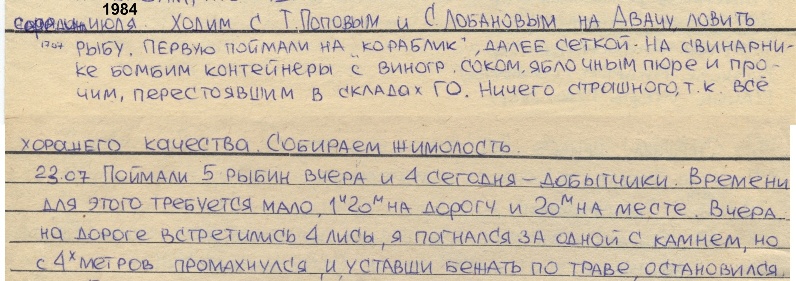 1984
Середина июля. Ходим с Т. Поповым и С. Лобановым на Авачу ловить
17.07 рыбу. Первую поймали на "кораблик", далее сеткой. На свинарни-
ке бомбим контейнеры с виногр. соком, яблочным пюре и про-
чим, перестоявшим в складах ГО. Ничего страшного, т.к. всё
хорошего качества. Собираем жимолость.
23.07 Поймали 5 рыбин вчера и 4 сегодня – добытчики. Времени
для этого требуется мало, 1ч20м на дорогу и 20м на месте. Вчера
на дороге встретились 4 лисы, я погнался за одной с камнем, но
с 4х метров промахнулся и уставши бежать по траве, остановился.